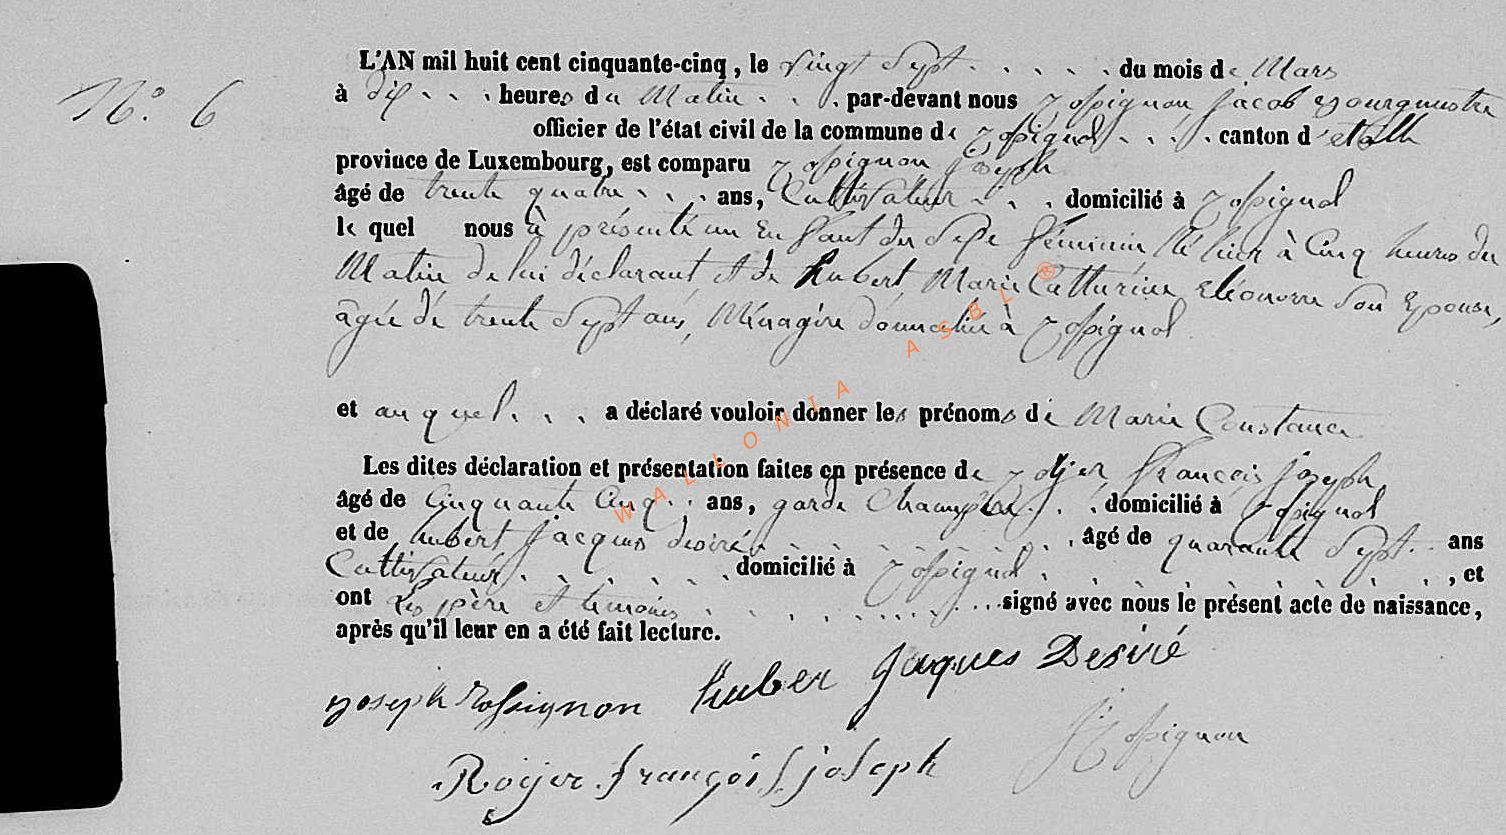 N° 6
L'AN mil huit cent cinquante-cinq, le vingt Sept . . . . . du mois de Mars
à dix . . . heures du Matin . . . par-devant nous Rossignon Jacob Bourgmestre
officier de l'état civil de la commune de Rossignol . . . . canton d'etalle
province de Luxembourg, est comparu Rossignon Joseph
âgé de trente quatre . . . ans, Cultivateur . . . domicilié à Rossignol
le quel nous à présenté un Enfant du Sexe féminin Né hier à Cinq heures du
Matin de lui déclarant et de Hubert, Marie Catturine Eléonorre Son Epouse,
âgée de trente Sept ans, Ménagère domicilié à Rossignol
et au quel . . . a déclaré vouloir donner les prénoms de Marie Constance
Les dites déclaration et présentation faites en présence de Rojer François Joseph
âgé de Cinquante Cinq . . ans, garde Champêtre . . . domicilié à Rossignol
et de hubert Jacques desiré . . . . . . . . . . âgé de quarante Sept . . ans
Cultivateur . . . . . . . domicilié à Rossignol . . . . . . . . . . , et
ont Les père et temoins . . . . . . . . . . . signé avec nous le présent acte de naissance,
après qu'il leur en a été fait lecture.
Joseph Rossignon Huber Jaques Desiré
J Rossignon
Rojer François Joseph
WALLONIA ASBL ®